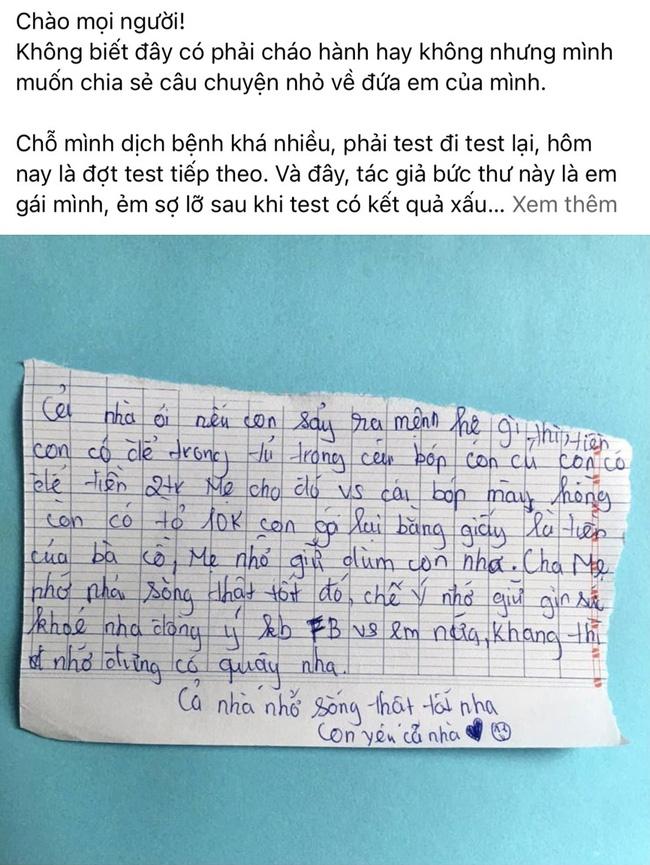 Chào mọi người!
Không biết đây có phải cháo hành hay không nhưng mình
muốn chia sẻ câu chuyện nhỏ về đứa em của mình.
Chỗ mình dịch bệnh khá nhiều, phải test đi test lại, hôm
nay là đợt test tiếp theo. Và đây, tác giả bức thư này là em
gái mình, ẻm sợ lỡ sau khi test có kết quả xấu... Xem thêm
Cả nhà ơi nếu con sẩy ra mệnh hệ gì, thì tiền
con có để trong tủ trong cái bóp con cú con có
để tiền 2tr Mẹ cho đó vs cái bóp màu hồng
con có tờ 10K con gó lại bằng giấy là tiền
của bà cô, Mẹ nhớ giữ dùm con nha. Cha Mẹ
nhớ phải sống thật tốt đó, chế Ý nhớ giữ gìn sức
khoẻ nha đồng ý kb FB vs em nữa, Khang thì
nhớ đừng có quậy nha.
Cả nhà nhớ sống thật tốt nha
Con yêu cả nhà